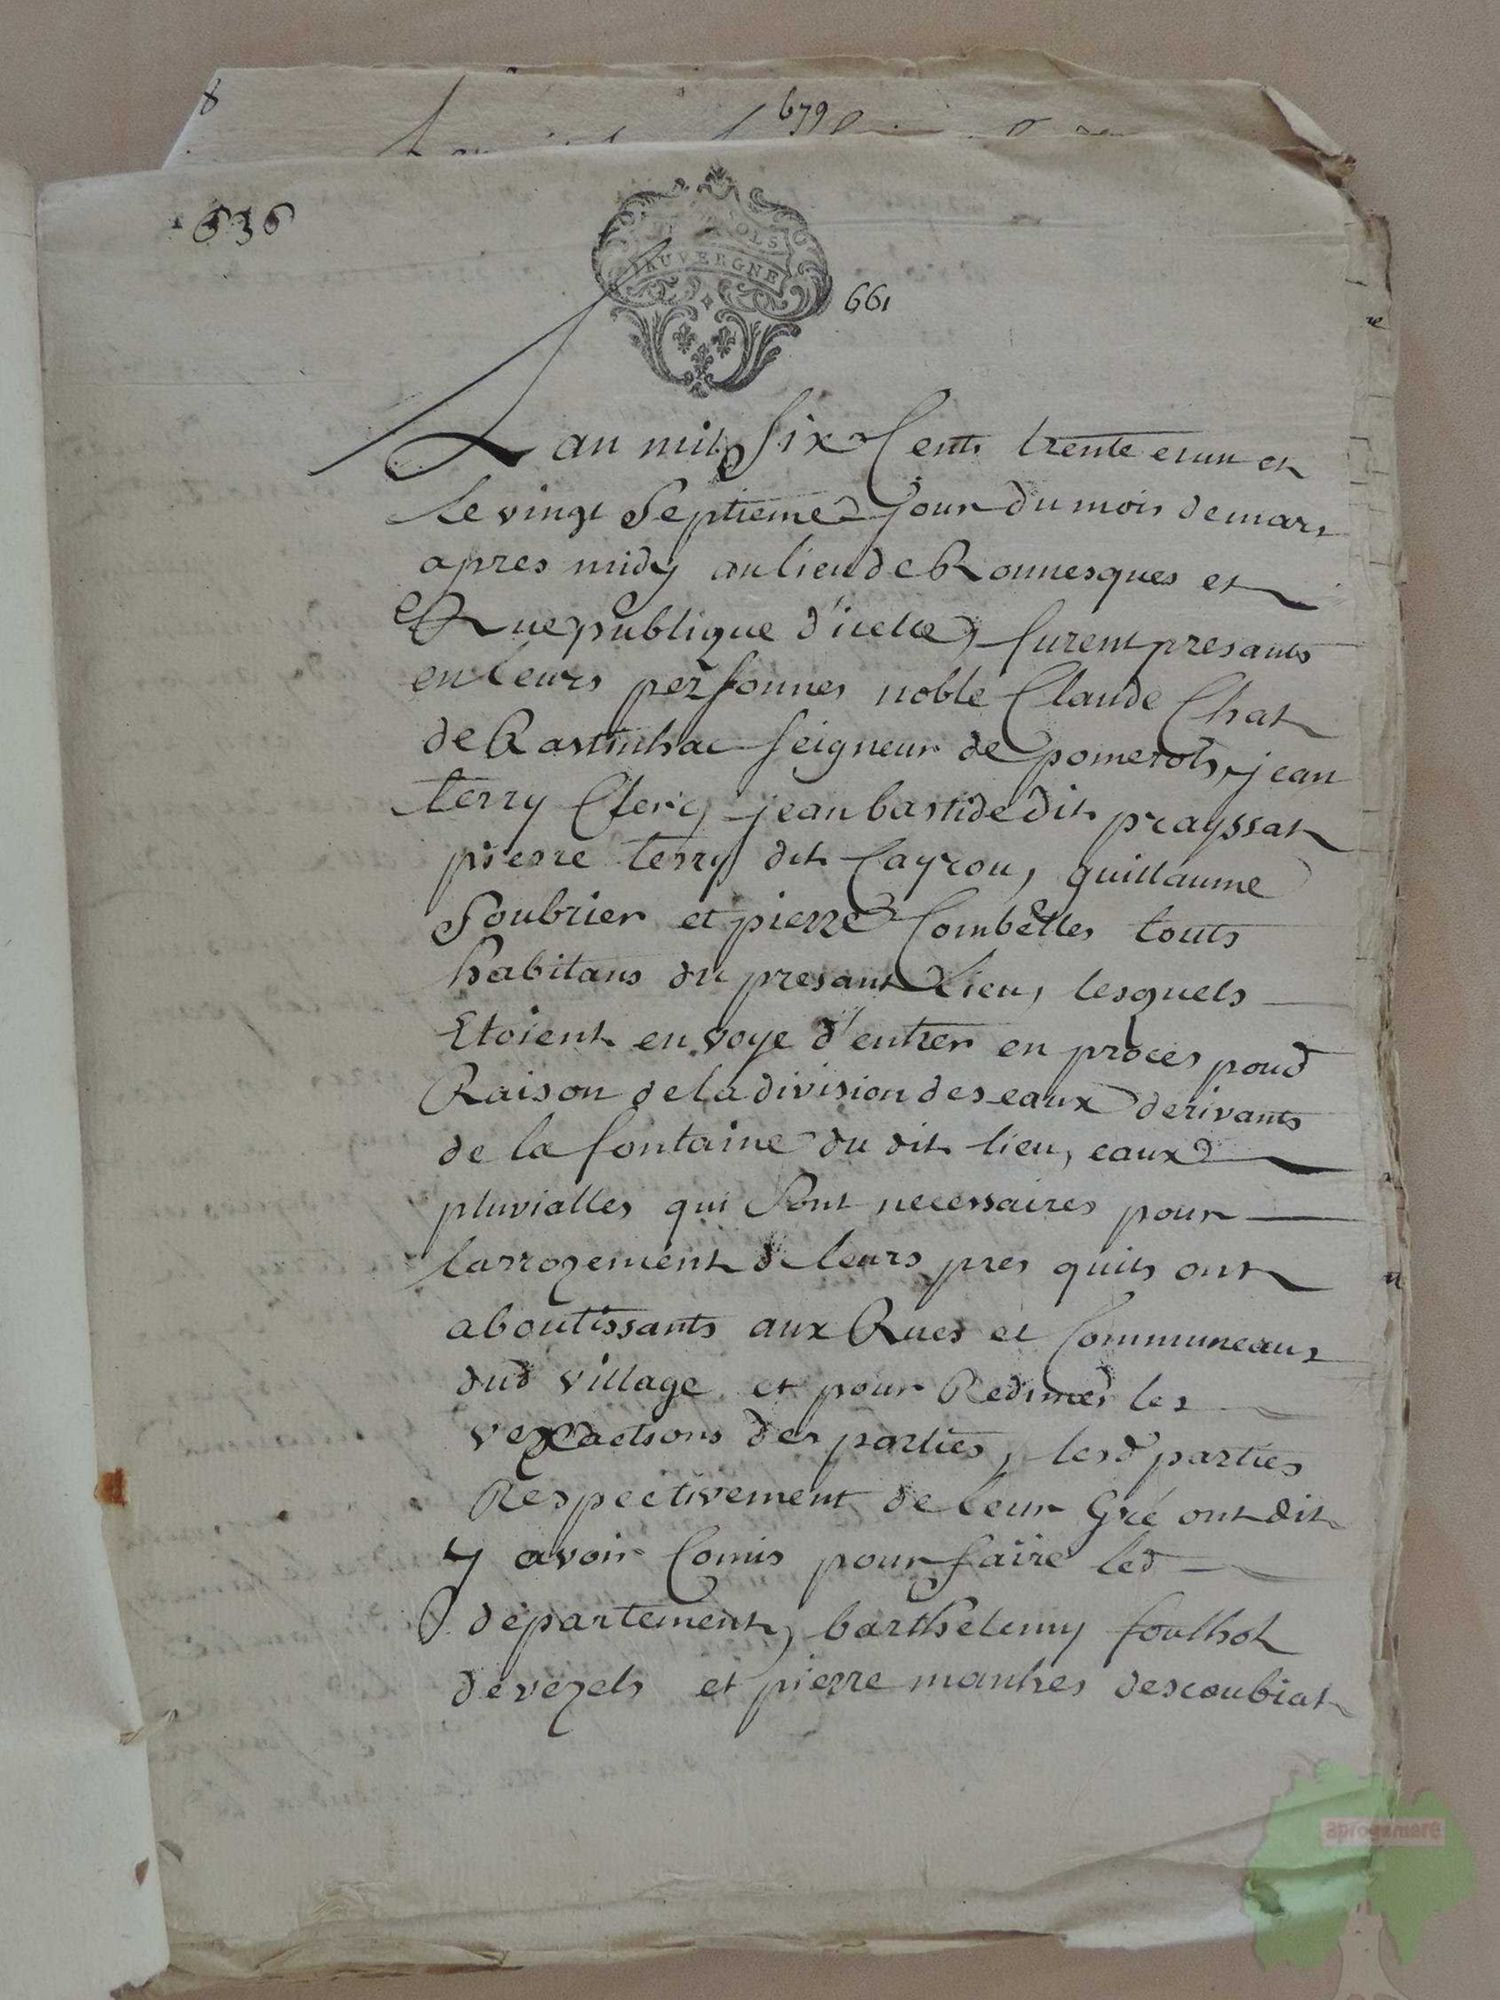 8
679
636
SOLS
AUVERGNE
661
Lan mil Six Cents trente et un et
le vingt Septieme Jour du mois de mars
apres midy au lieu de Ronnesques et
Rue publique d'icelle, furent presants
en leurs personnes noble Claude Chat
de Rastinhac seigneur de pomerols, jean
terry Clerc, jean bastide dit prayssat
pierre terry dit Cayrou, guillaume
Soubrier et pierre Combelles touts
habitans du presant Lieu, lesquels
Etoient en voye d'entrer en proces pour
Raison de la division des eaux derivants
de la fontaine du dit lieu, eaux
pluvialles qui Sont necessaires pour
larrozement de leurs pres quils ont
aboutissants aux Rues et Communeaux
dud village et pour Redimer les
vexactions des parties, lesd parties
Respectivement de leur Gré ont dit
y avoir Comis pour faire led
departement, barthelemy foulhol
de vezels et pierre manhes descoubiat
aprogemere